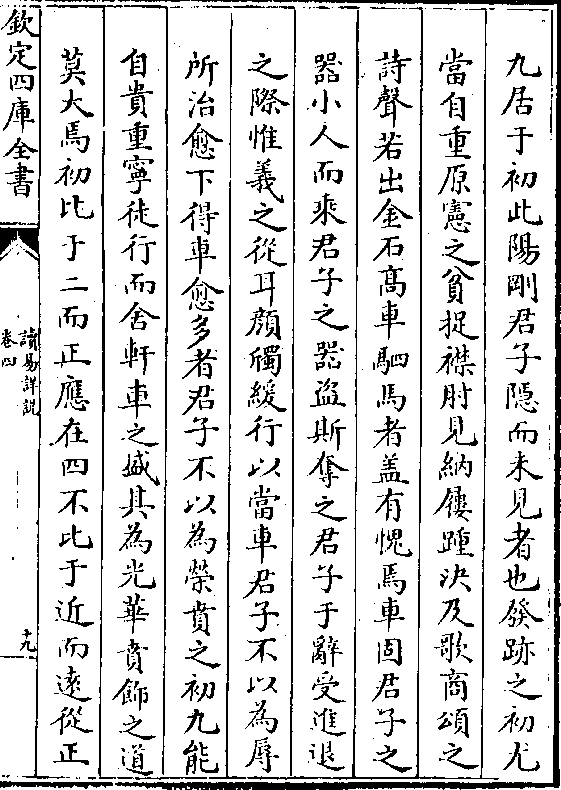 九居于初此陽剛君子隱而未見者也發跡之初尤
當自重原憲之貧捉襟肘見納履踵決及歌商頌之
詩聲若出金石高車駟馬者盖有愧焉車固君子之
器小人而乘君子之器盗斯奪之君子于辭受進退
之際惟義之從耳顔斶緩行以當車君子不以為辱
所治愈下得車愈多者君子不以為榮賁之初九能
自貴重寧徒行而舍軒車之盛其為光華賁飾之道
莫大焉初比于二而正應在四不比于近而逺從正
欽定四庫全書
讀易詳說
卷四
十九